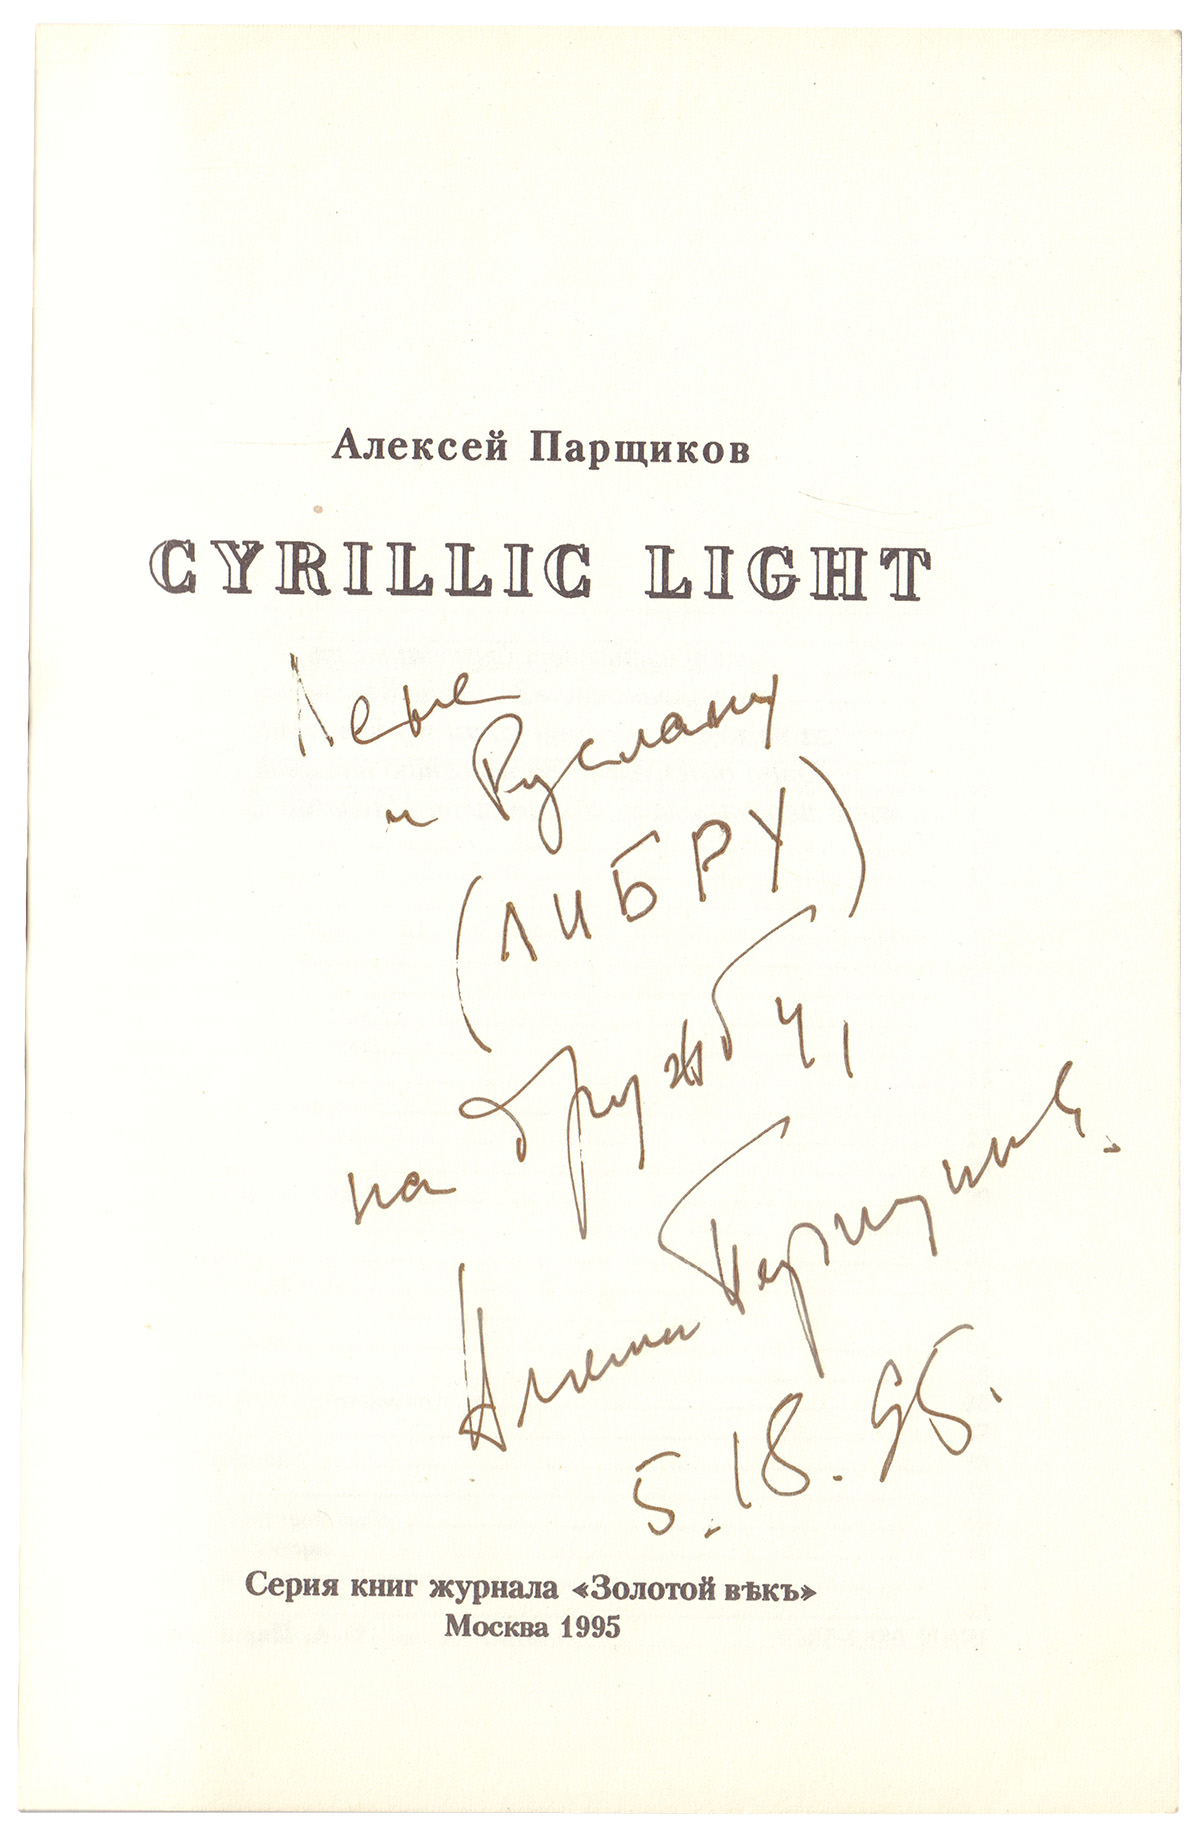 Алексей Парщиков
CYRILLIC LIGHT
Лене
и Руслану
(ЛИБРУ)
на дружбу,
Алеша Парщиков.
5.18.95.
Серия книг журнала «Золотой вѣкъ»
Москва 1995